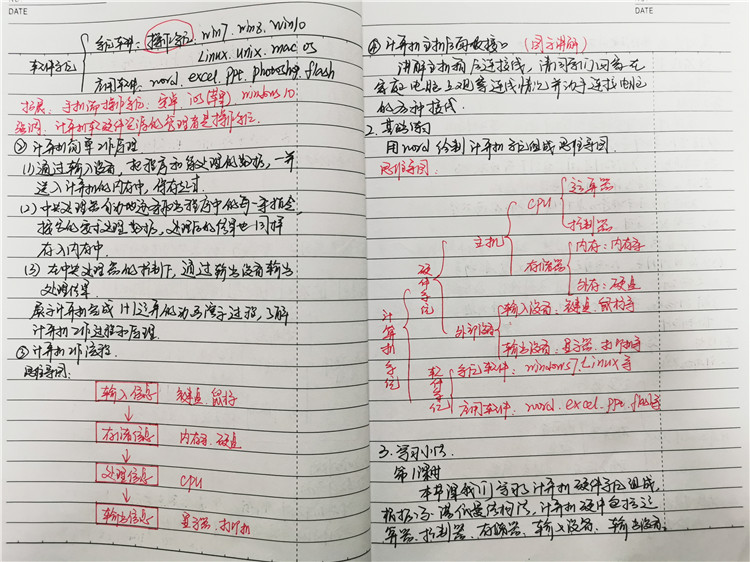 DATE
系统软件: 操作系统. win7. win8. win10
Linux. unix. mac os
软件系统
应用软件: word. excel. ppt. photoshop. flash
扩展: 手机端操作系统: 安卓. iOS(苹果) windows 10
强调: 计算机软硬件资源的管理者是操作系统.
② 计算机简单工作原理
(1) 通过输入设备, 把程序和待处理的数据, 一并
送入计算机的内存中, 保存起来.
(2) 中央处理器自动地逐条取出程序中的每一条指令,
按指令的要求处理数据, 处理后的结果也同样
存入内存中.
(3) 在中央处理器的控制下, 通过输出设备输出
处理结果.
展示计算机完成1+1运算的动画演示过程, 了解
计算机工作过程和原理.
③ 计算机工作流程.
思维导图:
输入信息 键盘. 鼠标
存储信息 内存. 硬盘
处理信息 CPU
输出信息 显示器. 打印机
DATE
④ 计算机主机后面板接口 (图片讲解)
讲解主机箱后连接线, 请同学们回家在
家庭电脑上观察连线情况并动手连接电脑
的各种接线.
2. 基础练习
用word绘制计算机系统组成思维导图.
思维导图:
计算机系统
硬件系统
主机
CPU
运算器
控制器
存储器
内存: 内存条
外存: 硬盘
外部设备
输入设备: 键盘. 鼠标等
输出设备: 显示器. 打印机等
软件系统
系统软件: windows7. Linux等
应用软件: word. excel. ppt. flash等
3. 学习小结.
第1课时
本节课我们学习了计算机硬件系统组成.
根据冯·诺依曼结构, 计算机硬件包括运
算器. 控制器. 存储器. 输入设备. 输出设备.